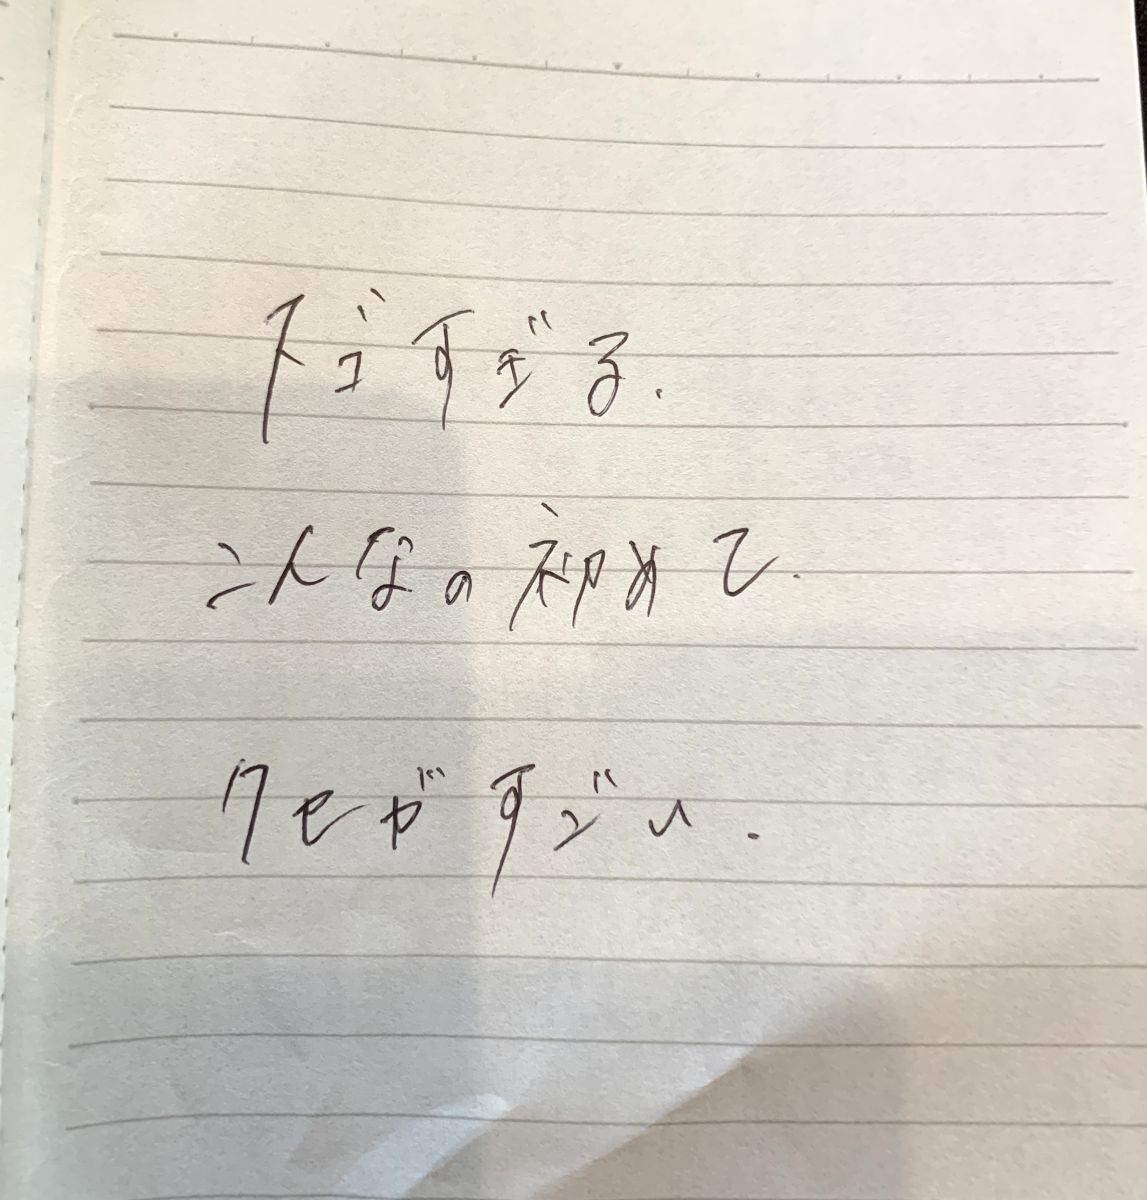 スゴすぎる.
こんなの初めて.
クセがすごい.